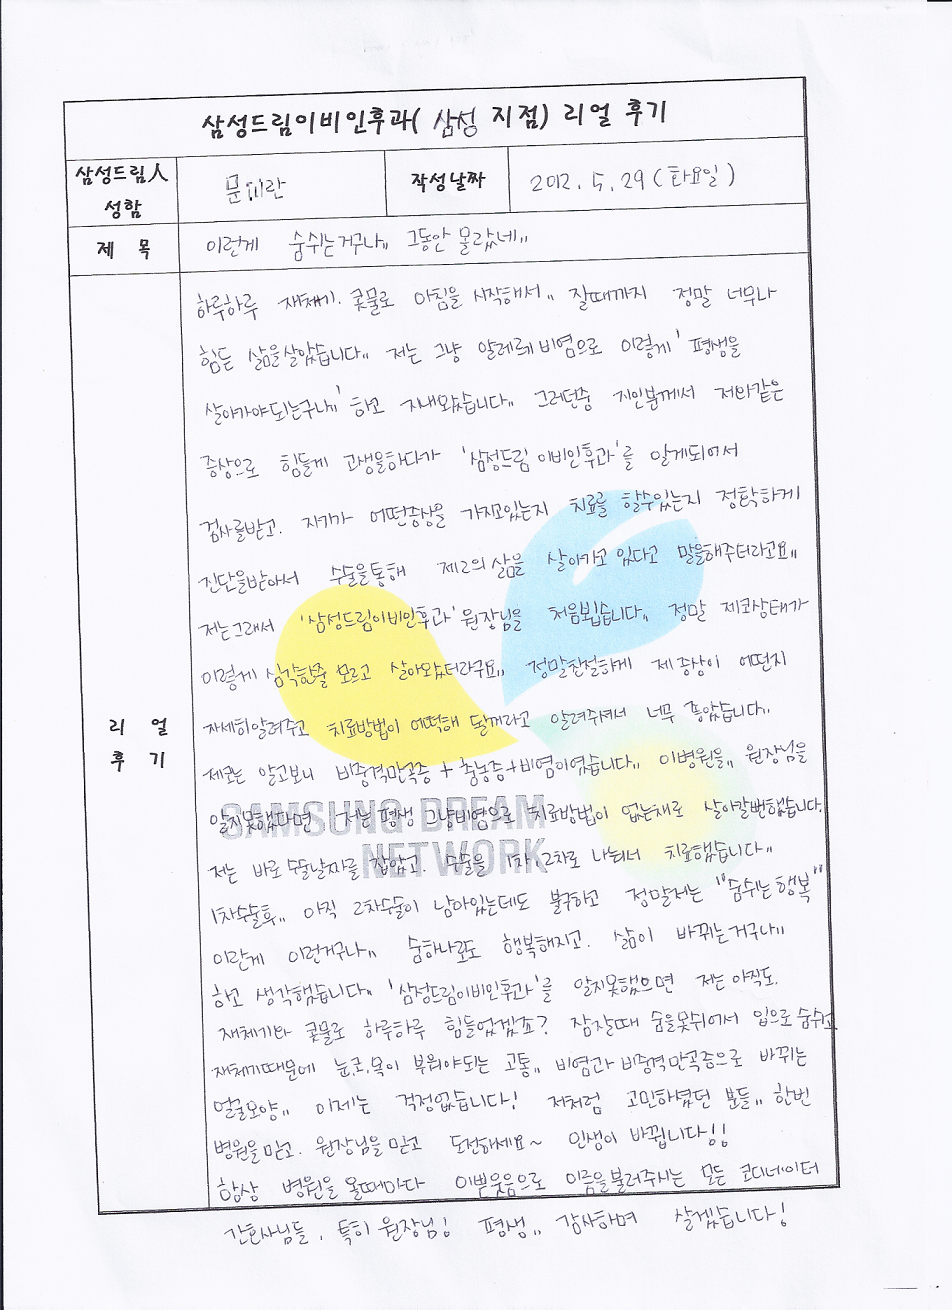 삼성드림이비인후과( 삼성 지점) 리얼 후기
삼성드림人 성함
문 란
작성날짜
2012. 5. 29 (화요일)
제 목
이런게 숨쉬는거구나,, 그동안 몰랐네,,
리 얼
후 기
하루하루 재채기. 콧물로 아침을 시작해서,, 잘때까지 정말 너무나
힘든 삶을살았습니다,, 저는 그냥 알레르기비염으로 이렇게 '평생을
살아가야되는구나' 하고 지내왔습니다,, 그러던중 지인분께서 저와같은
증상으로 힘들게 고생을하다가 '삼성드림 이비인후과'를 알게되어서
검사를받고. 자기가 어떤증상을 가지고있는지 치료를 할수있는지 정확하게
진단을받아서 수술을통해 제2의 삶을 살아가고 있다고 말을해주더라고요,,
저는그래서 '삼성드림이비인후과' 원장님을 처음뵙습니다,, 정말 제코상태가
이렇게 심각한줄 모르고 살아왔더라구요,, 정말친절하게 제증상이 어떤지
자세히알려주고 치료방법이 어떡해 될꺼라고 알려주셔서 너무 좋았습니다,,
제코는 알고보니 비중격만곡증 + 축농증+비염이였습니다,, 이병원을,, 원장님을
알지못했다면 저는평생 그냥비염으로 치료방법이 없는채로 살아갈뻔했습니다.
저는 바로 수술날짜를 잡았고. 수술을 1차, 2차로 나눠서 치료했습니다,,
1차수술후,, 아직 2차수술이 남아있는데도 불구하고 정말저는 "숨쉬는행복"
이란게 이런거구나,, 숨하나로도 행복해지고. 삶이 바뀌는거구나,,
하고 생각했습니다,, '삼성드림이비인후과'를 알지못했으면 저는아직도.
재채기와 콧물로 하루하루 힘들었겠죠? 잠잘때 숨을못쉬어서 입으로 숨쉬고
재채기때문에 눈,코,목이 부워야되는 고통,, 비염과 비중격만곡증으로 바뀌는
얼굴모양,, 이제는 걱정없습니다! 저처럼 고민하셨던 분들,, 한번
병원을믿고. 원장님을믿고 도전해세요~ 인생이 바뀝니다!!
항상 병원을 올때마다 이쁜웃음으로 이름을불러주시는 모든 코디네이터
간호사님들, 특히 원장님! 평생,, 감사하며 살겠습니다!
SAMSUNG DREAM
NETWORK